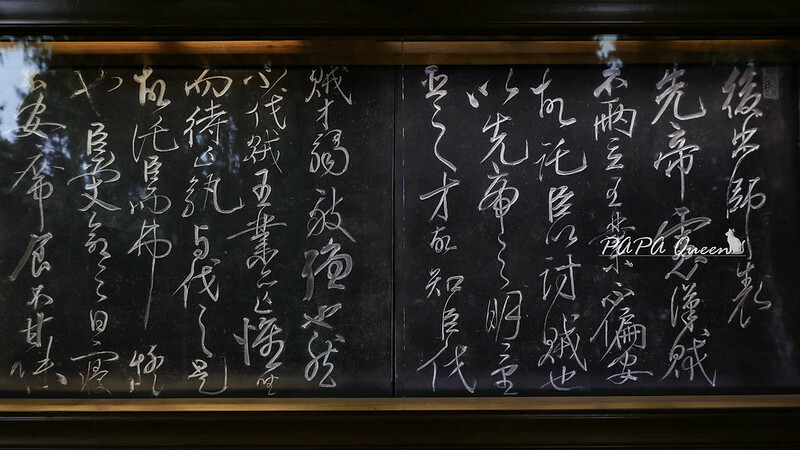 後出師表
先帝慮漢賊
不兩立王業不偏安
故託臣以討賊也
以先帝之明量
臣之才故知臣伐
賊才弱敵強也然
不伐賊王業亦亡惟坐
而待亡孰與伐之是
故託臣而弗疑
也臣受命之日寢
不安席食不甘味
PAPA Queen